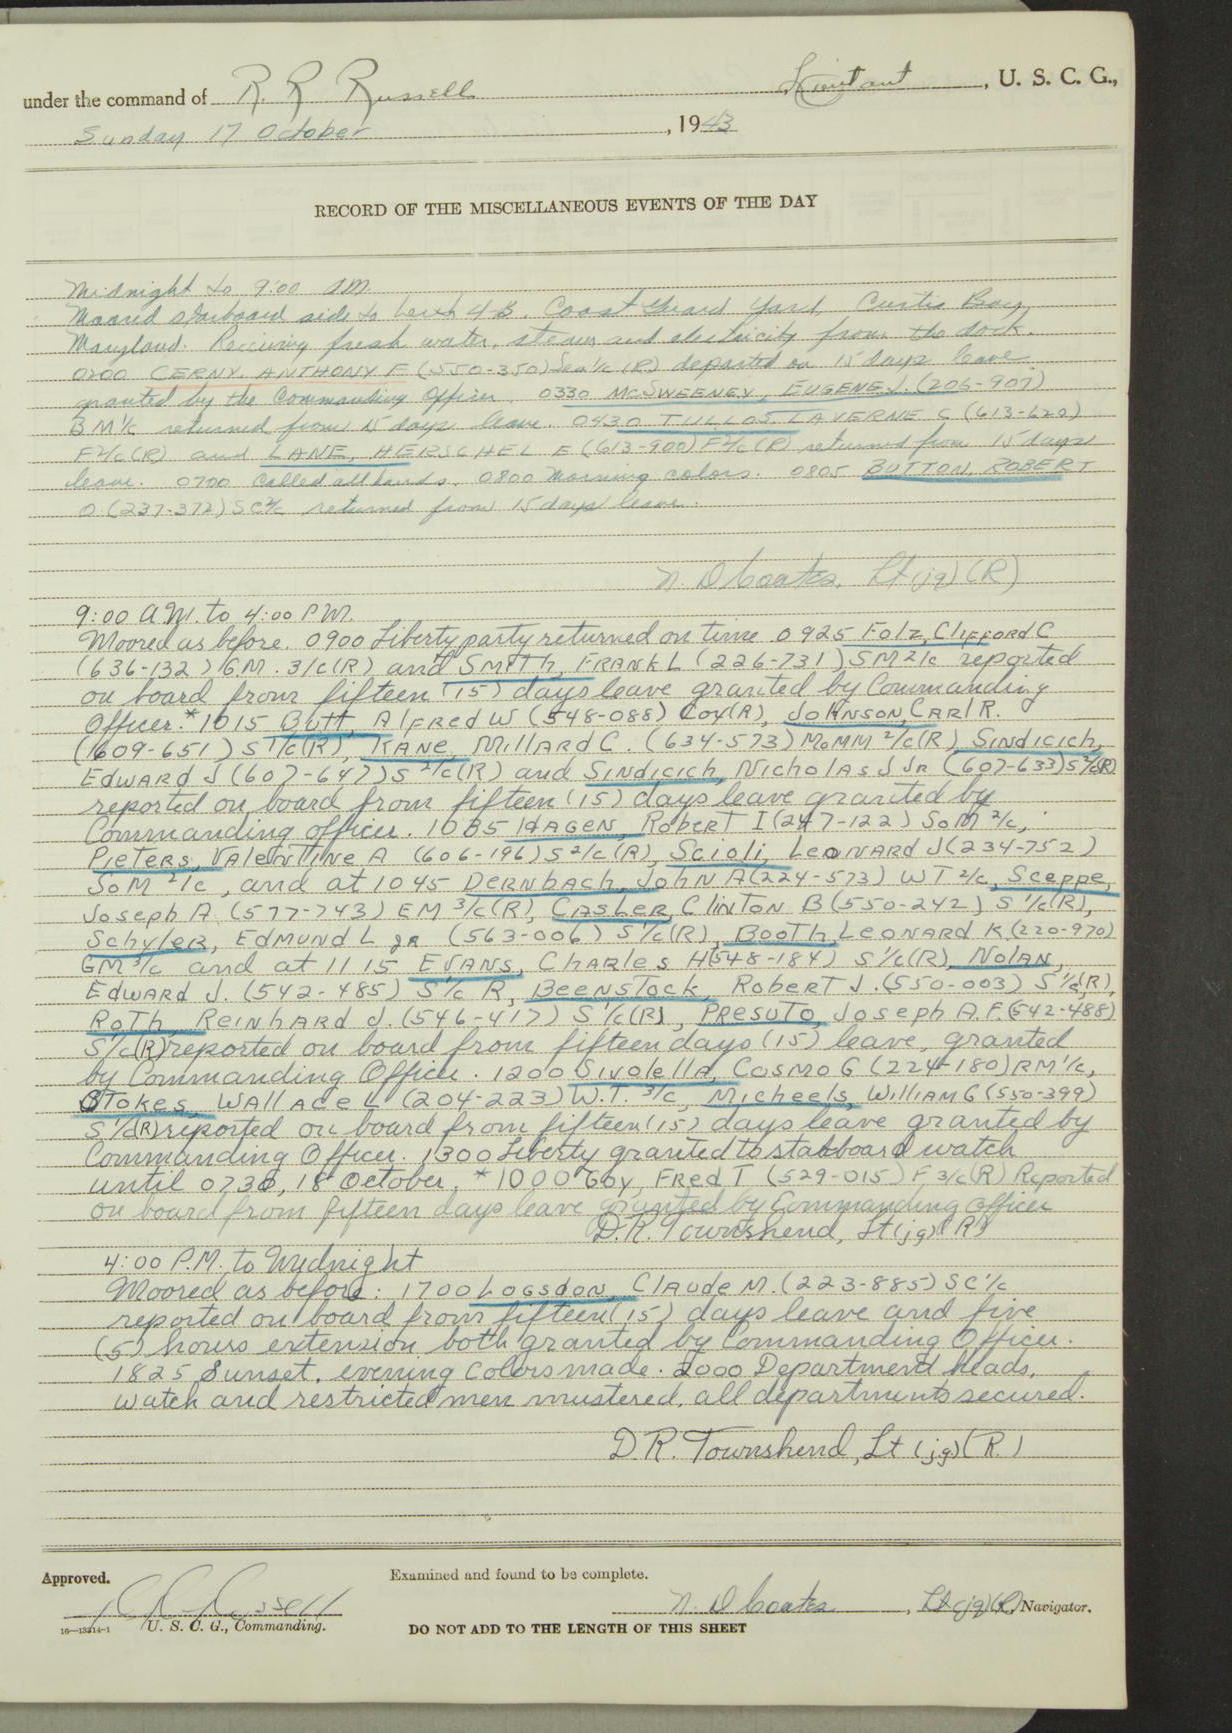 under the command of R. R. Russell Lieutenant, U. S. C. G.,
Sunday 17 October, 1943
RECORD OF THE MISCELLANEOUS EVENTS OF THE DAY
Midnight to 9:00 A.M.
Moored starboard side to berth 4-B, Coast Guard Yard, Curtis Bay,
Maryland. Receiving fresh water, steam and electricity from the dock.
0200 CERNY, ANTHONY F (550-350) Sea 1/c (R) departed on 15 days leave
granted by the Commanding Officer. 0330 McSWEENEY, EUGENE J. (206-907)
BM 1/c returned from 15 days leave. 0430 TULLOS, LAVERNE C (613-620)
F 2/c (R) and LANE, HERSCHEL E (613-900) F 2/c (R) returned from 15 days
leave. 0700 Called all hands. 0800 Morning colors. 0805 BUTTON, ROBERT
O (237-372) SC 2/c returned from 15 days leave.
N. D Coates, Lt (jg) (R)
9:00 A.M. to 4:00 P.M.
Moored as before. 0900 Liberty party returned on time 0925 Folz, CliFFord C
(636-132) GM. 3/c (R) and SMITh, FRANK L (226-731) SM 2/c reported
on board from fifteen (15) days leave granted by Commanding
Officer. * 1015 Butt, AlFRed W (548-088) Cox (R), JohNSON, CARl R.
(609-651) S 1/c (R), KANE, MillARd C. (634-573) MoMM 2/c (R) SiNdicich,
EdwARd J (607-647) S 2/c (R) and SiNdicich, NicholAS J JR (607-633) S 2/c (R)
reported on board from fifteen (15) days leave granted by
Commanding officer. 1035 HAGEN, RobeRT I (247-122) SoM 2/c,
PieteRS, VAleNTiNe A (606-196) S 2/c (R), Scioli, LeoNARd J (234-752)
SoM 2/c, and at 1045 DeRNbAch, JohN A (224-573) WT 2/c, Sceppe,
Joseph A (577-743) EM 3/c (R), CASLeR, CliNToN B (550-242) S 1/c (R),
SchyleR, EdMuNd L JR (563-006) S 1/c (R), Booth, LeoNARd K (220-970)
GM 3/c and at 1115 EVANS, ChARleS H (548-184) S 1/c (R), NolAN,
EdwARd J. (542-485) S 1/c R, BeeNStock, RobeRT J. (550-003) S 1/c (R),
Roth, ReiNhARd J. (546-417) S 1/c (R), PReSuto, Joseph A.F. (542-488)
S 1/c (R) reported on board from fifteen days (15) leave, granted
by Commanding Officer. 1200 SivolellA, CoSMo G (224-180) RM 1/c,
StokeS, WAllAce L (204-223) W.T. 3/c, MicheelS, WilliAM G (550-399)
S 1/c (R) reported on board from fifteen (15) days leave granted by
Commanding Officer. 1300 Liberty granted to starboard watch
until 0730, 18 October. * 1000 Goy, FRed T (529-015) F 3/c (R) Reported
on board from fifteen days leave granted by Commanding Officer
D.R. Townshend, Lt (jg) (R)
4:00 P.M. to Midnight
Moored as before: 1700 LogSdoN, ClAude M. (223-885) SC 1/c
reported on board from fifteen (15) days leave and five
(5) hours extension both granted by Commanding Officer.
1825 Sunset, evening Colors made. 2000 Department heads,
watch and restricted men mustered, all departments secured.
D.R. Townshend, Lt (jg) (R.)
Approved. Examined and found to be complete.
R R Russell N. D Coates, Lt (jg) (R) Navigator.
16—13214-1 U. S. C. G., Commanding. DO NOT ADD TO THE LENGTH OF THIS SHEET